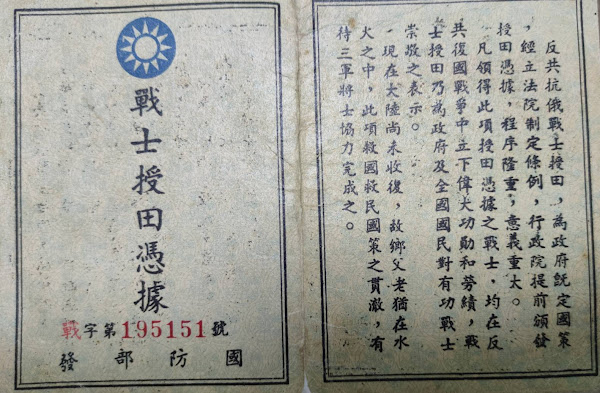 戰士授田憑據
戰字第195151號
國防部發
反共抗俄戰士授田,為政府既定國策
,經立法院制定條例,行政院提前頒發
授田憑據,程序隆重,意義重大。
凡領得此項授田憑據之戰士,均在反
共復國戰爭中立下偉大功勛和勞績,戰
士授田乃為政府及全國國民對有功戰士
崇敬之表示。
現在大陸尚未收復,故鄉父老猶在水
火之中,此項救國救民國策之貫澈,有
待三軍將士協力完成之。